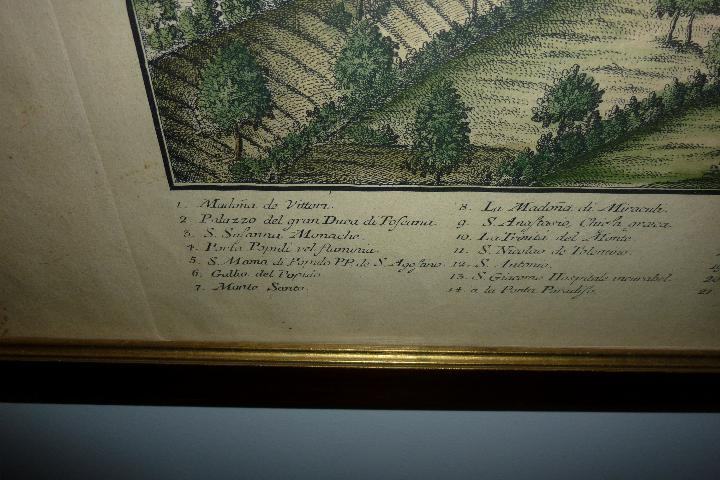 1. Madoña de Vittori.
2 Palazzo del gran Duca di Toscana
3. S. Susanna Monache
4. Porta Populi vel flaminia
5. S. Mama di Populo PP. de S. Agostino.
6. del Popolo
7. Monte Santo.
8. La Madoña di Miracoli.
9. S. Anastasio, Chiesa greca
10. La Trinita del Monte
11. S. Nicolao de Tolentino.
12. S. Antonio.
13. S. Giacomo Hospitale incurabel.
14. a la Ponta Paradiso.
20
21.